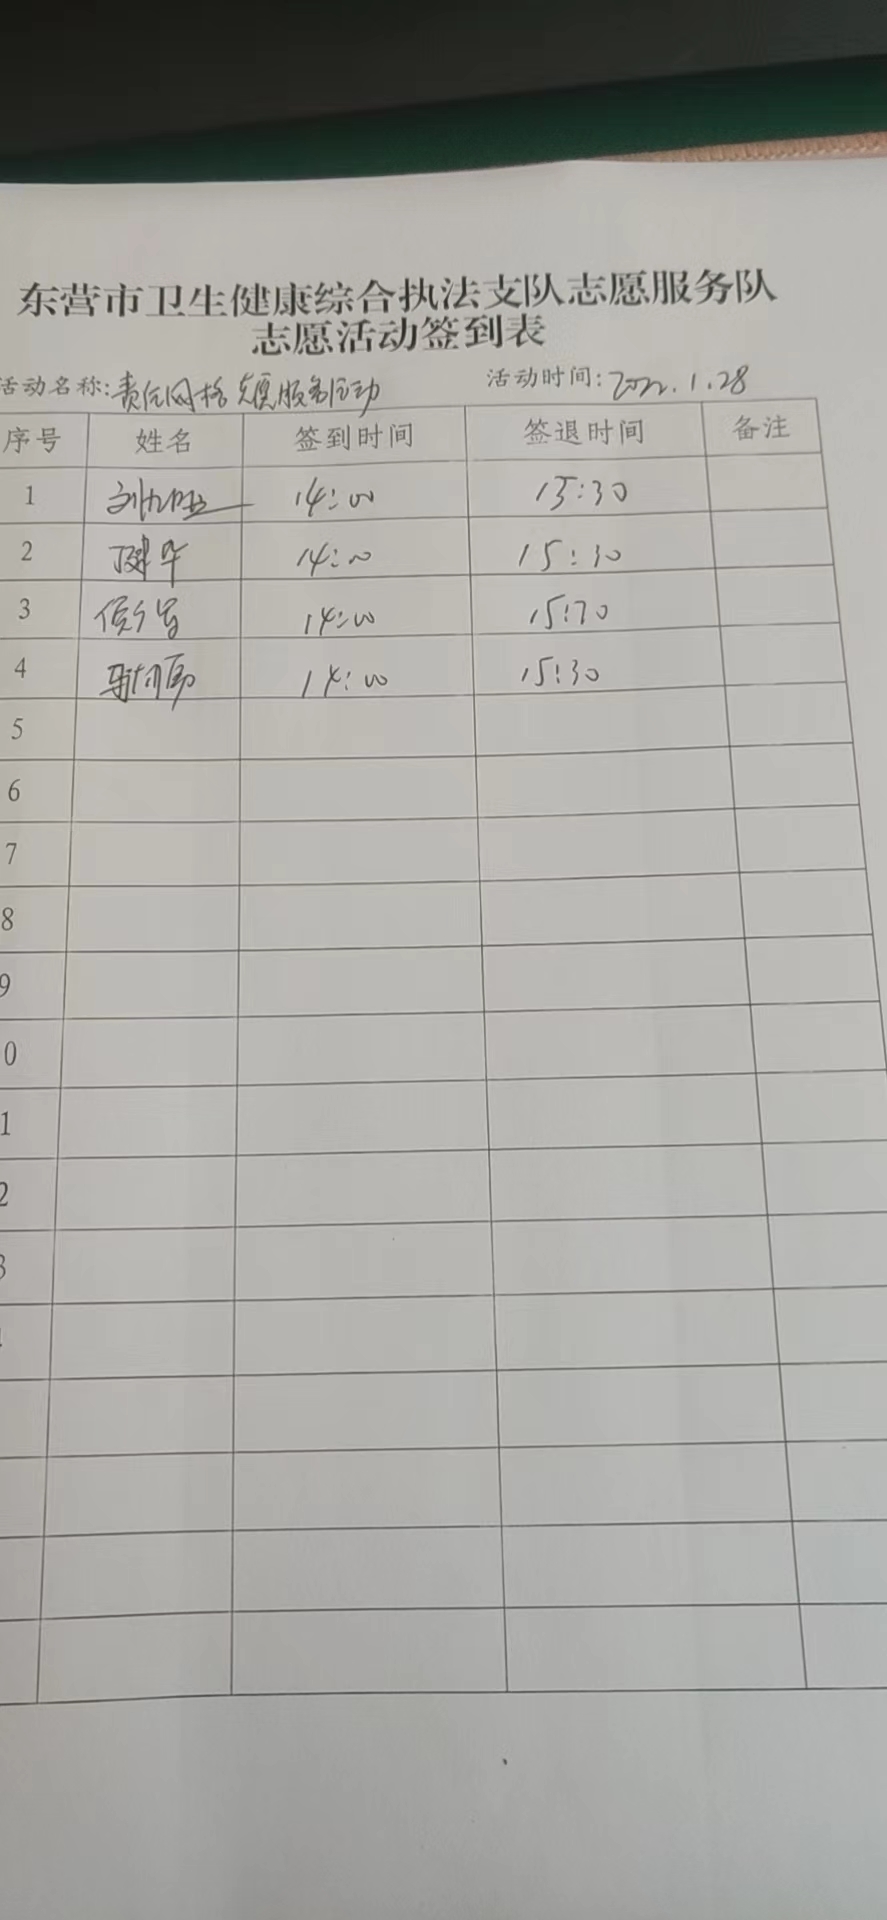 东营市卫生健康综合执法支队志愿服务队
志愿活动签到表
活动名称:责任网格志愿服务活动 活动时间:2022.1.28
序号 姓名 签到时间 签退时间 备注
1 14:00 15:30
2 14:00 15:30
3 14:00 15:30
4 14:00 15:30
5
6
7
8
9
0
1
2
3